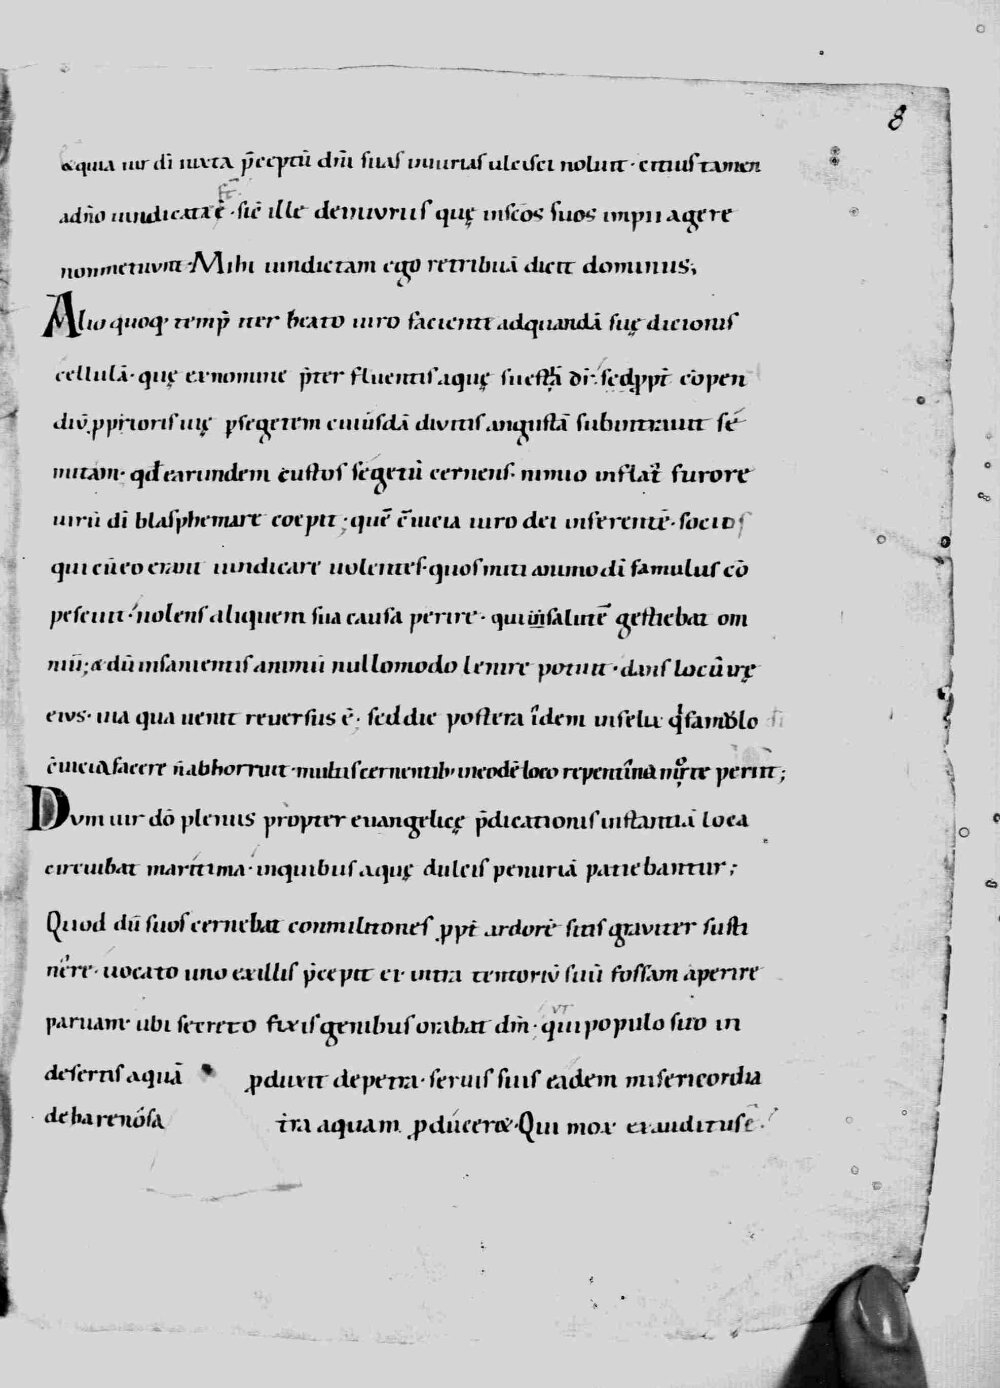 8
&quia uir dī iuxta p̄ceptū dm̄i suas iniurias ulcisci noluit · citius tamen
adn̄o uindicatǣ · sic̄ ille deiniuriis quę insc̄os suos impii agere
nonmetuunt · Mihi uindictam ego retribuā dicit dominus;
Alio quoq· temp̄ iter beato uiro facienti adquandā suę dicionis
cellulā · quę exnomine p̄ter fluentis aquę suestrā dr̄ · sed ꝓpt̄ cōpen
diū ꝓprioris uię ꝑsegetem cuiusdā diuitis angustā subintrauit sé
mitam · qđ earundem custos segetū cernens · nimio inflat᷒ furore
uirū dī blasphemare coepit; quē c̄uicia uiro dei inferentē · socios
qui cū eo erant uindicare uolentes · quos miti animo dī famulus cō
pescuit · nolens aliquem sua causa perire · qui insalutē gestiebat om
niū; & dū insanientis animū nullomodo lenire potuit · dans locū irę
eius · uia qua uenit reuersus ē; sed die postera idem infelix q᷒ famulo dī
c̄uicia facere n̄ abhorruit · multis cernentib· ineodē loco repentina morte periit;
Dum uir dō plenus propter euangelicę p̄dicationis instantiā loca
circuibat maritima · inquibus aquę dulcis penuriā patiebantur;
Quod dū suos cernebat conmilitones ꝓpt̄ ardorē sitis grauiter susti
nere · uocato uno exillis p̄cepit ei intra tentoriū suū fossam aperire
paruam · ubi secreto fixis genibus orabat dm̄ · ut qui populo suo in
desertis aquā ꝓduxit depetra · seruis suis eadem misericordia
deharenosa tr̄a aquam ꝓducer& · Qui mox exauditus ē ·